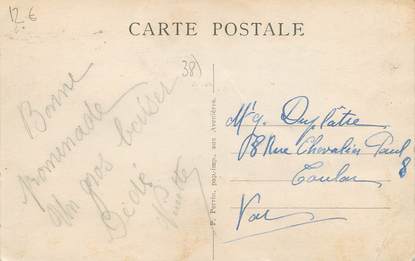 12 €
CARTE POSTALE
38)
Bonne
promenade
Un gros baiser
Dédé
P. Perrin, pap.-imp. aux Avenières.
Mr g. Duplâtre
18 Rue Chevalier Paul
8
Toulon
Var